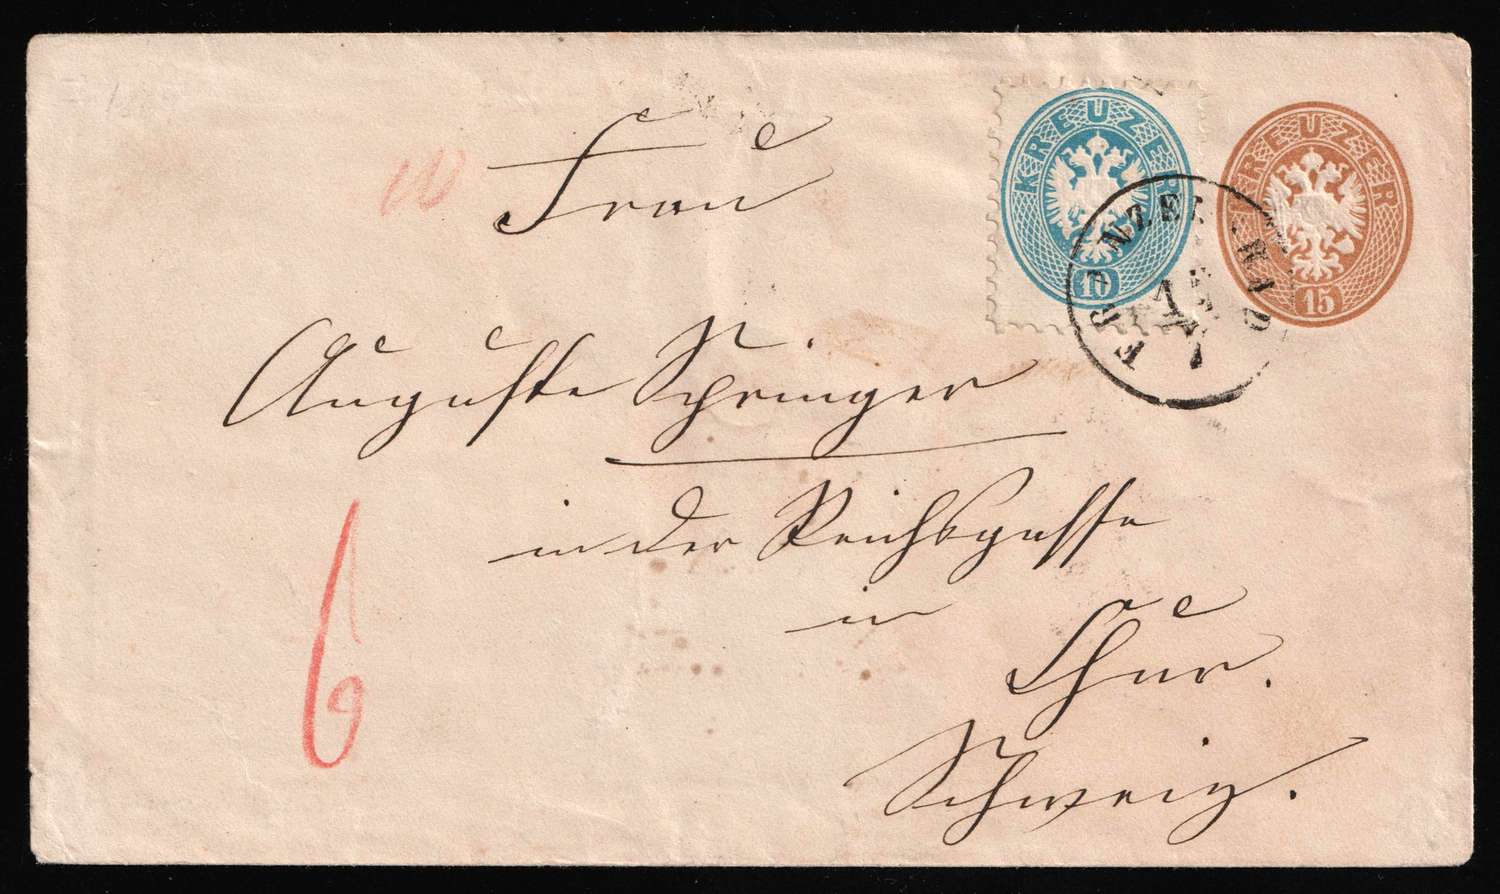 KREUZER
10
KREUZER
15
FRANZENSBAD
15
7
Frau
Auguste Springer
in der Reichsgasse
in
Chur.
Schweiz.
6